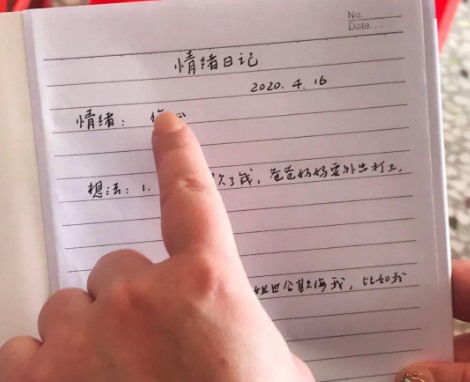 No.
Date.
情绪日记
2020. 4. 16
情绪：心
想法：1. 欠了钱，爸爸妈妈要外出打工，
姐也会欺侮我，比如我